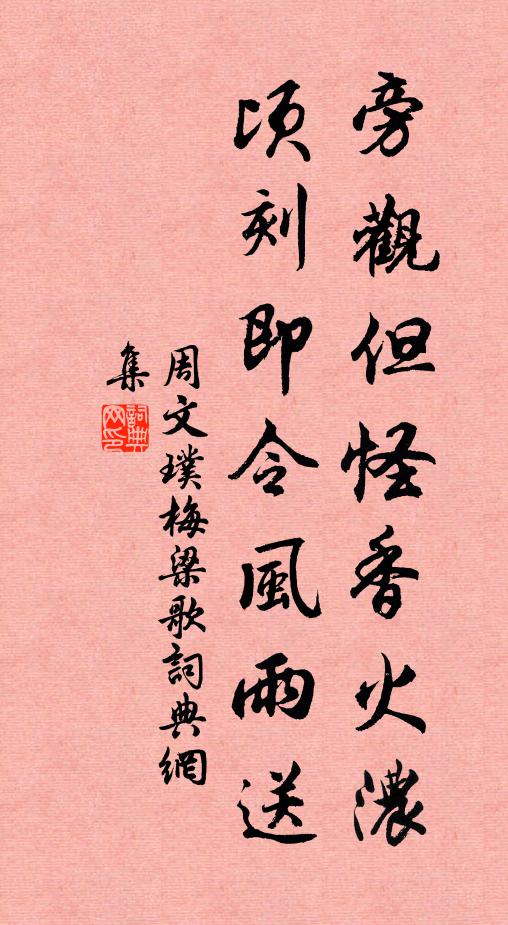 旁觀但怪香火濃
頃刻即令風雨送
周文璞梅梁歌詞典網
集
詞典网印